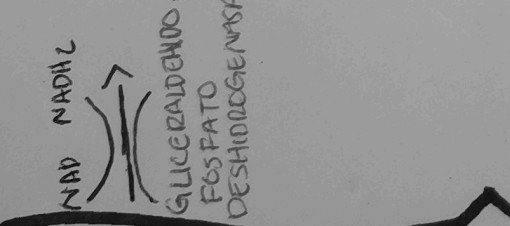 NAD NADH2
GLICERALDEHIDO
FOSFATO
DESHIDROGENASA